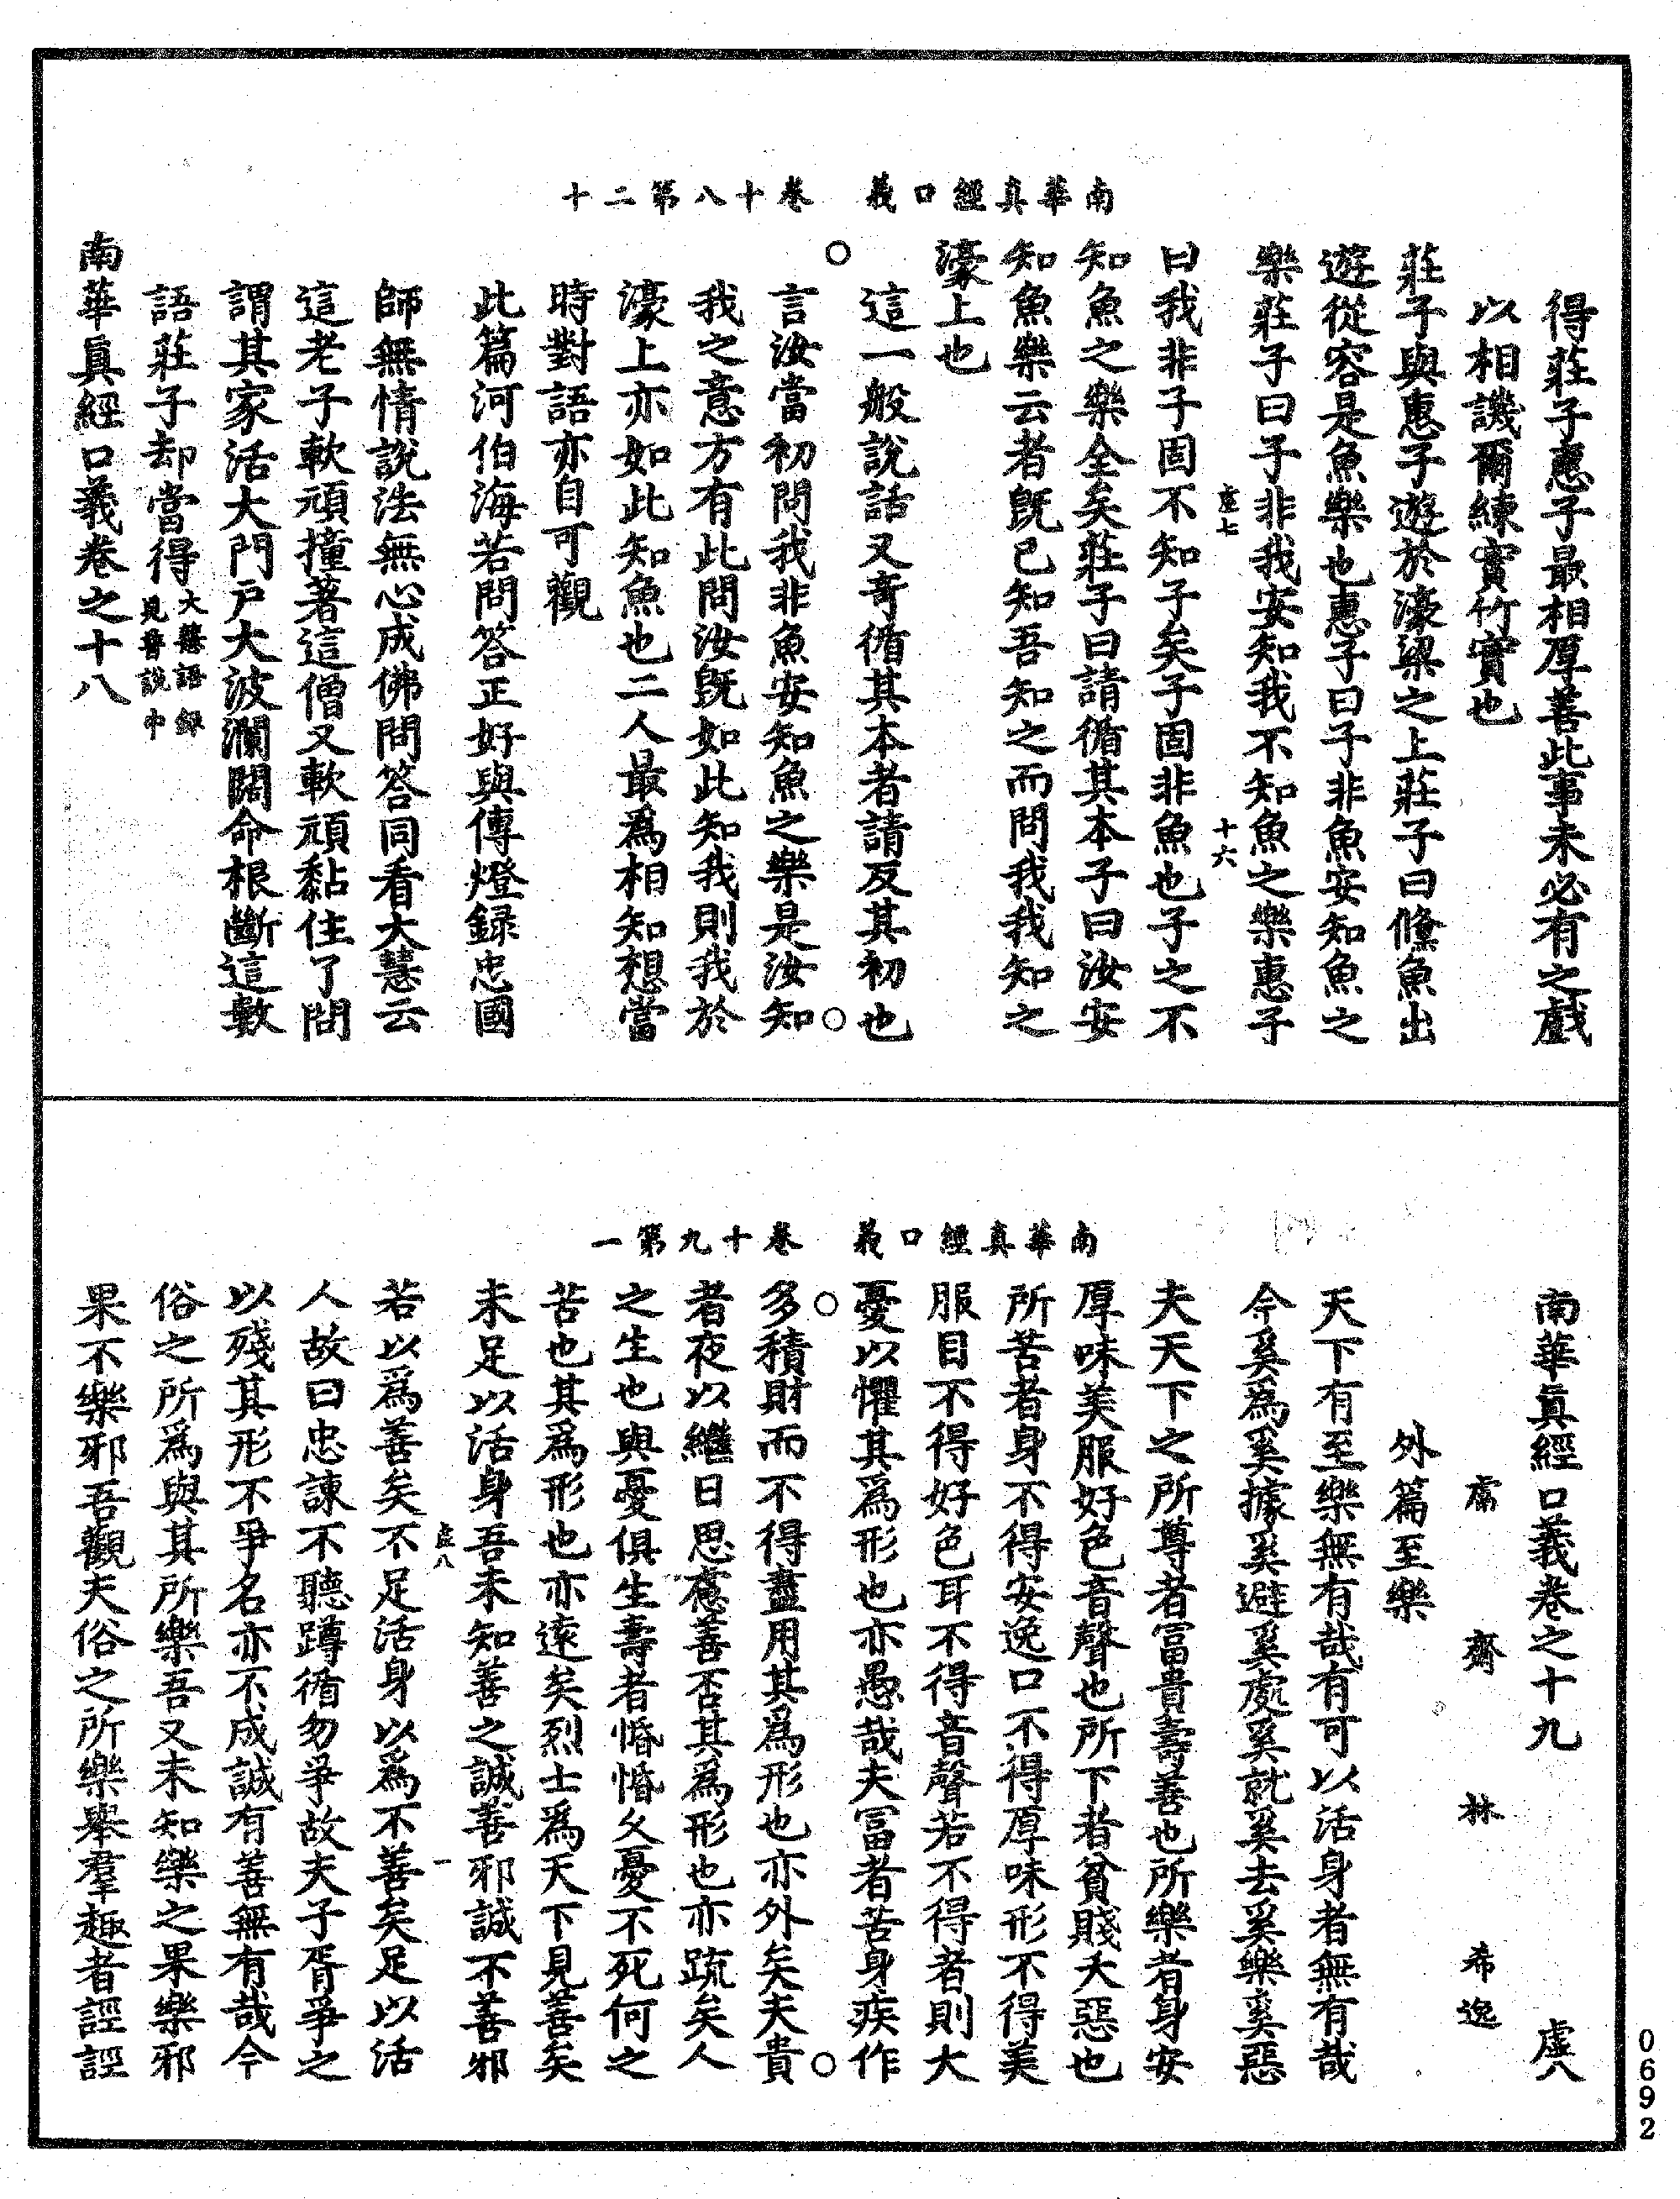 南華真經口義　卷十八第二十
得莊子惠子最相厚善此事未必有之戲
以相譏爾練實竹實也
莊子與惠子遊於濠梁之上莊子曰儵魚出
遊從容是魚樂也惠子曰子非魚安知魚之
樂莊子曰子非我安知我不知魚之樂惠子
虛七　十六
曰我非子固不知子矣子固非魚也子之不
知魚之樂全矣莊子曰請循其本子曰汝安
知魚樂云者既已知吾知之而問我我知之
濠上也
這一般說話又奇循其本者請反其初也
言汝當初問我非魚安知魚之樂是汝知
我之意方有此問汝既如此知我則我於
濠上亦如此知魚也二人最爲相知想當
時對語亦自可觀
此篇河伯海若問答正好與傳燈録忠國
師無情說法無心成佛問答同看大慧云
這老子軟頑撞著這僧又軟頑黏住了問
謂其家活大門戶大波瀾闊命根斷這數
語莊子却當得大慧語録見普說中
南華眞經口義卷之十八
南華真經口義　卷十九第一
南華眞經口義卷之十九　虛八
鬳齋林希逸
外篇至樂
天下有至樂無有哉有可以活身者無有哉
今奚為奚據奚避奚處奚就奚去奚樂奚惡
夫天下之所尊者富貴壽善也所樂者身安
厚味美服好色音聲也所下者貧賤夭惡也
所苦者身不得安逸口不得厚味形不得美
服目不得好色耳不得音聲若不得者則大
憂以懼其爲形也亦愚哉夫富者苦身疾作
多積財而不得盡用其爲形也亦外矣夫貴
者夜以繼日思慮善否其爲形也亦疏矣人
之生也與憂俱生壽者惛惛久憂不死何之
苦也其爲形也亦遠矣烈士爲天下見善矣
未足以活身吾未知善之誠善邪誠不善邪
虛八　一
若以爲善矣不足活身以爲不善矣足以活
人故曰忠諫不聽蹲循勿爭故夫子胥爭之
以殘其形不爭名亦不成誠有善無有哉今
俗之所爲與其所樂吾又未知樂之果樂邪
果不樂邪吾觀夫俗之所樂舉羣趣者誙誙
0692